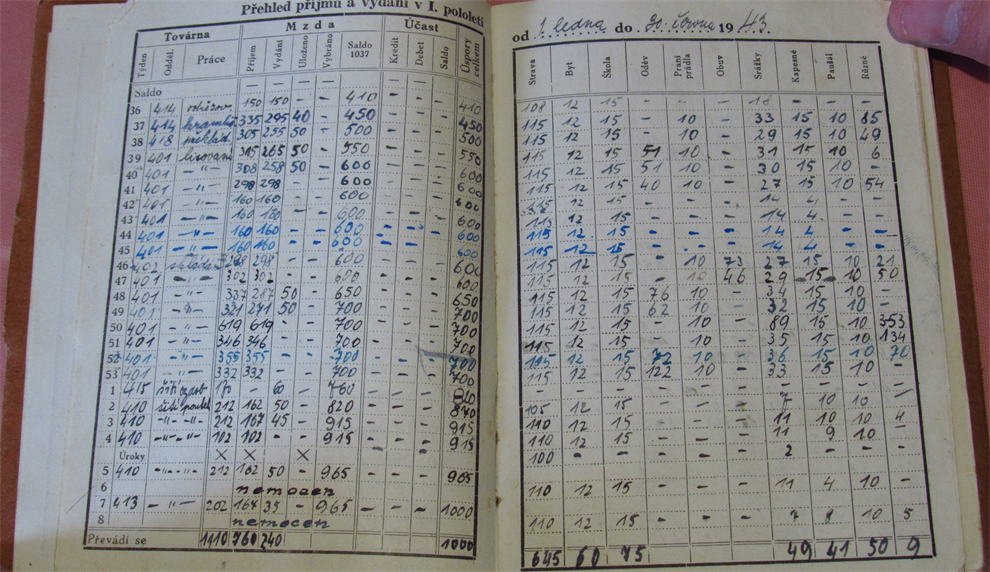 Přehled příjmů a vydání v I. pololetí
Továrna Mzda Účast
Týden Odděl. Práce Příjem Vydání Uloženo Vybráno Saldo 1037 Kredit Debet Saldo Úspory celkem
Saldo — — — — — — —
36 414 150 150 - - 410 - - - 410
37 414 335 295 40 - 450 - - - 450
38 418 305 255 50 - 500 - - - 500
39 401 lisování 315 265 50 - 550 - - - 550
40 401 -"- 308 258 50 - 600 - - - 600
41 401 -"- 298 298 - - 600 - - - 600
42 401 -"- 160 160 - - 600 - - - 600
43 401 -"- 160 160 - - 600 - - - 600
44 401 -"- 160 160 - - 600 - - - 600
45 401 -"- 160 160 - - 600 - - - 600
46 402 298 298 - - 600 - - - 600
47 401 -"- 302 302 - - 600 - - - 600
48 401 -"- 337 287 50 - 650 - - - 650
49 401 -"- 321 271 50 - 700 - - - 700
50 401 -"- 619 619 - - 700 - - - 700
51 401 -"- 346 346 - - 700 - - - 700
52 401 -"- 355 355 - - 700 - - - 700
53 401 -"- 332 332 - - 700 - - - 700
1 415 šití - 60 - 760 - - -
2 410 šití 212 162 50 - 820 - - - 870
3 410 -"- -"- 212 167 45 - 915 - - - 915
4 410 -"- -"- 102 102 - - 915 - - - 915
Úroky × × ×
5 410 -"- -"- 212 162 50 - 965 - - - 965
6 nemocen
7 413 - "- 202 167 35 - 965 - - - 1000
8 nemocen
Převádí se 1110 760 240 1000
od 1. ledna do 30. června 1943.
Strava Byt Škola Oděv Praní prádla Obuv Srážky Kapesné Paušál Různé
108 12 15 - - - 18 - - -
115 12 15 - 10 - 33 15 10 85
115 12 15 - 10 - 29 15 10 49
115 12 15 51 10 - 31 15 10 6
115 12 15 51 10 - 30 15 10
115 12 15 40 10 - 27 15 10 54
115 12 15 - - - 14 4 - -
115 12 15 - - - 14 4 - -
115 12 15 - - - 14 4 - -
115 12 15 - - - 14 4 - -
115 12 15 - 10 73 27 15 10 21
115 12 15 - 10 46 29 15 10 50
115 12 15 76 10 - 34 15 10 -
115 12 15 62 10 - 32 15 10 -
115 12 15 - 10 - 89 15 10 353
115 12 15 - 10 - 35 15 10 134
115 12 15 72 10 - 36 15 10 70
115 12 15 122 10 - 33 15 10 -
- - - - - - 7 10 10 -
105 12 15 - - - 11 10 10 4
110 12 15 - - - 11 9 10 -
110 12 15 - - -
100 - - - - - 2 - - -
110 12 15 - - - 11 4 10 -
110 12 15 - - - 7 8 10 5
645 60 75 49 41 50 9